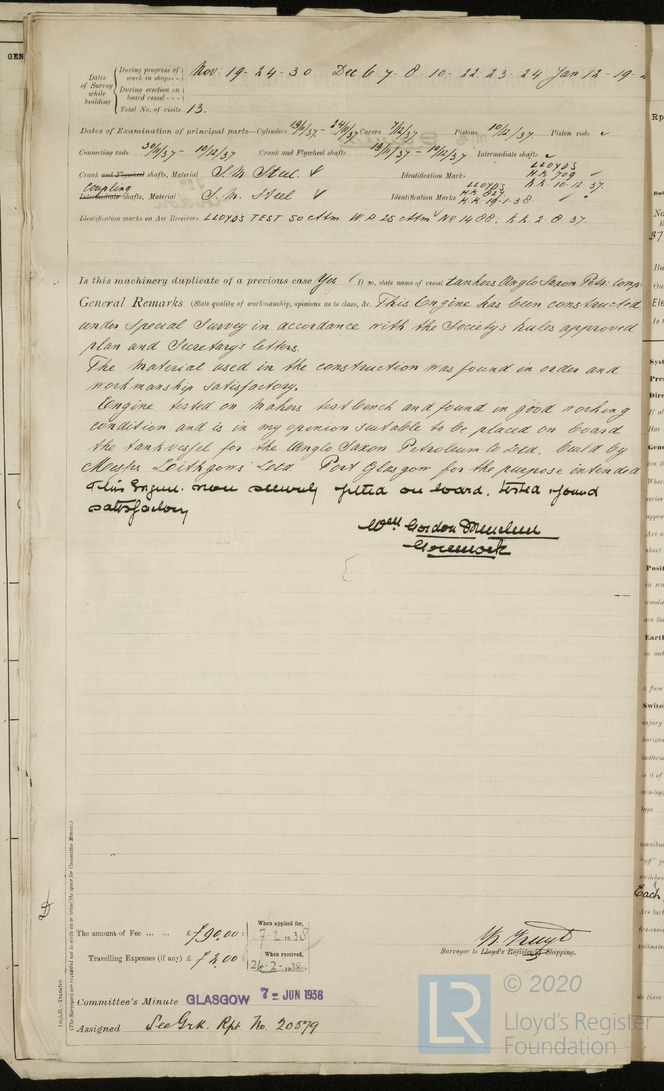 GEN
Dates of Survey while building
During progress of work in shops - - Nov: 19 - 24 - 30 Dec 6 - 7 - 8 - 10 - 22 - 23 - 24 Jan 12 - 19 -
During erection on board vessel - - -
Total No. of visits 13.
Dates of Examination of principal parts—Cylinders 19/11/37 - 24/11/37 Covers 7/12/37 Pistons 10/12/37 Piston rods ✓
Connecting rods 30/11/37 - 10/12/37 Crank and Flywheel shafts 19/11/37 - 10/12/37 Intermediate shafts ✓
Crank and Flywheel shafts, Material S.M. Steel ✓ Identification Marks LLOYDS H.K. 709 K.K. 10-12-37
Coupling
Intermediate shafts, Material S.M. Steel ✓ Identification Marks LLOYDS H.K. 837 K.K. 19-1-38
Identification marks on Air Receivers LLOYD'S TEST 50 Atm W.P. 25 Atm No 1488. K.K. 2. 8. 37.
Is this machinery duplicate of a previous case Yes (If so, state name of vessel tankers Anglo Saxon Petr. Comp.
General Remarks (State quality of workmanship, opinions as to class, &c. This Engine has been constructed
under Special Survey in accordance with the Society's Rules approved
plan and Secretary's letters.
The material used in the construction was found in order and
workmanship satisfactory.
Engine tested on makers testbench and found in good working
condition and is in my opinion suitable to be placed on board
the tankvessel for the Anglo Saxon Petroleum Co Ltd. build by
Messrs Lithgows Ltd Port Glasgow for the purpose intended
This Engine now securely fitted on board, tested & found
satisfactory
Wm Gordon
Greenock
(The Surveyors are requested not to write on or below the space for Committee's Minute.)
The amount of Fee ... ... £ ƒ90.00 : When applied for, 7-2 1938
Travelling Expenses (if any) £ ƒ4.00 : When received, 26-2-1938
Surveyor to Lloyd's Register of Shipping.
Committee's Minute GLASGOW 7 - JUN 1938
Assigned See Grk. Rpt. No. 20579
Each
LR © 2020
Lloyd's Register
Foundation